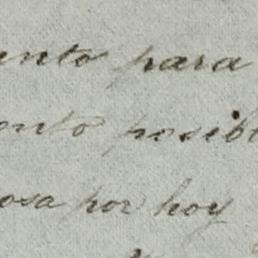 ento para
ento posibl
osa por hoy